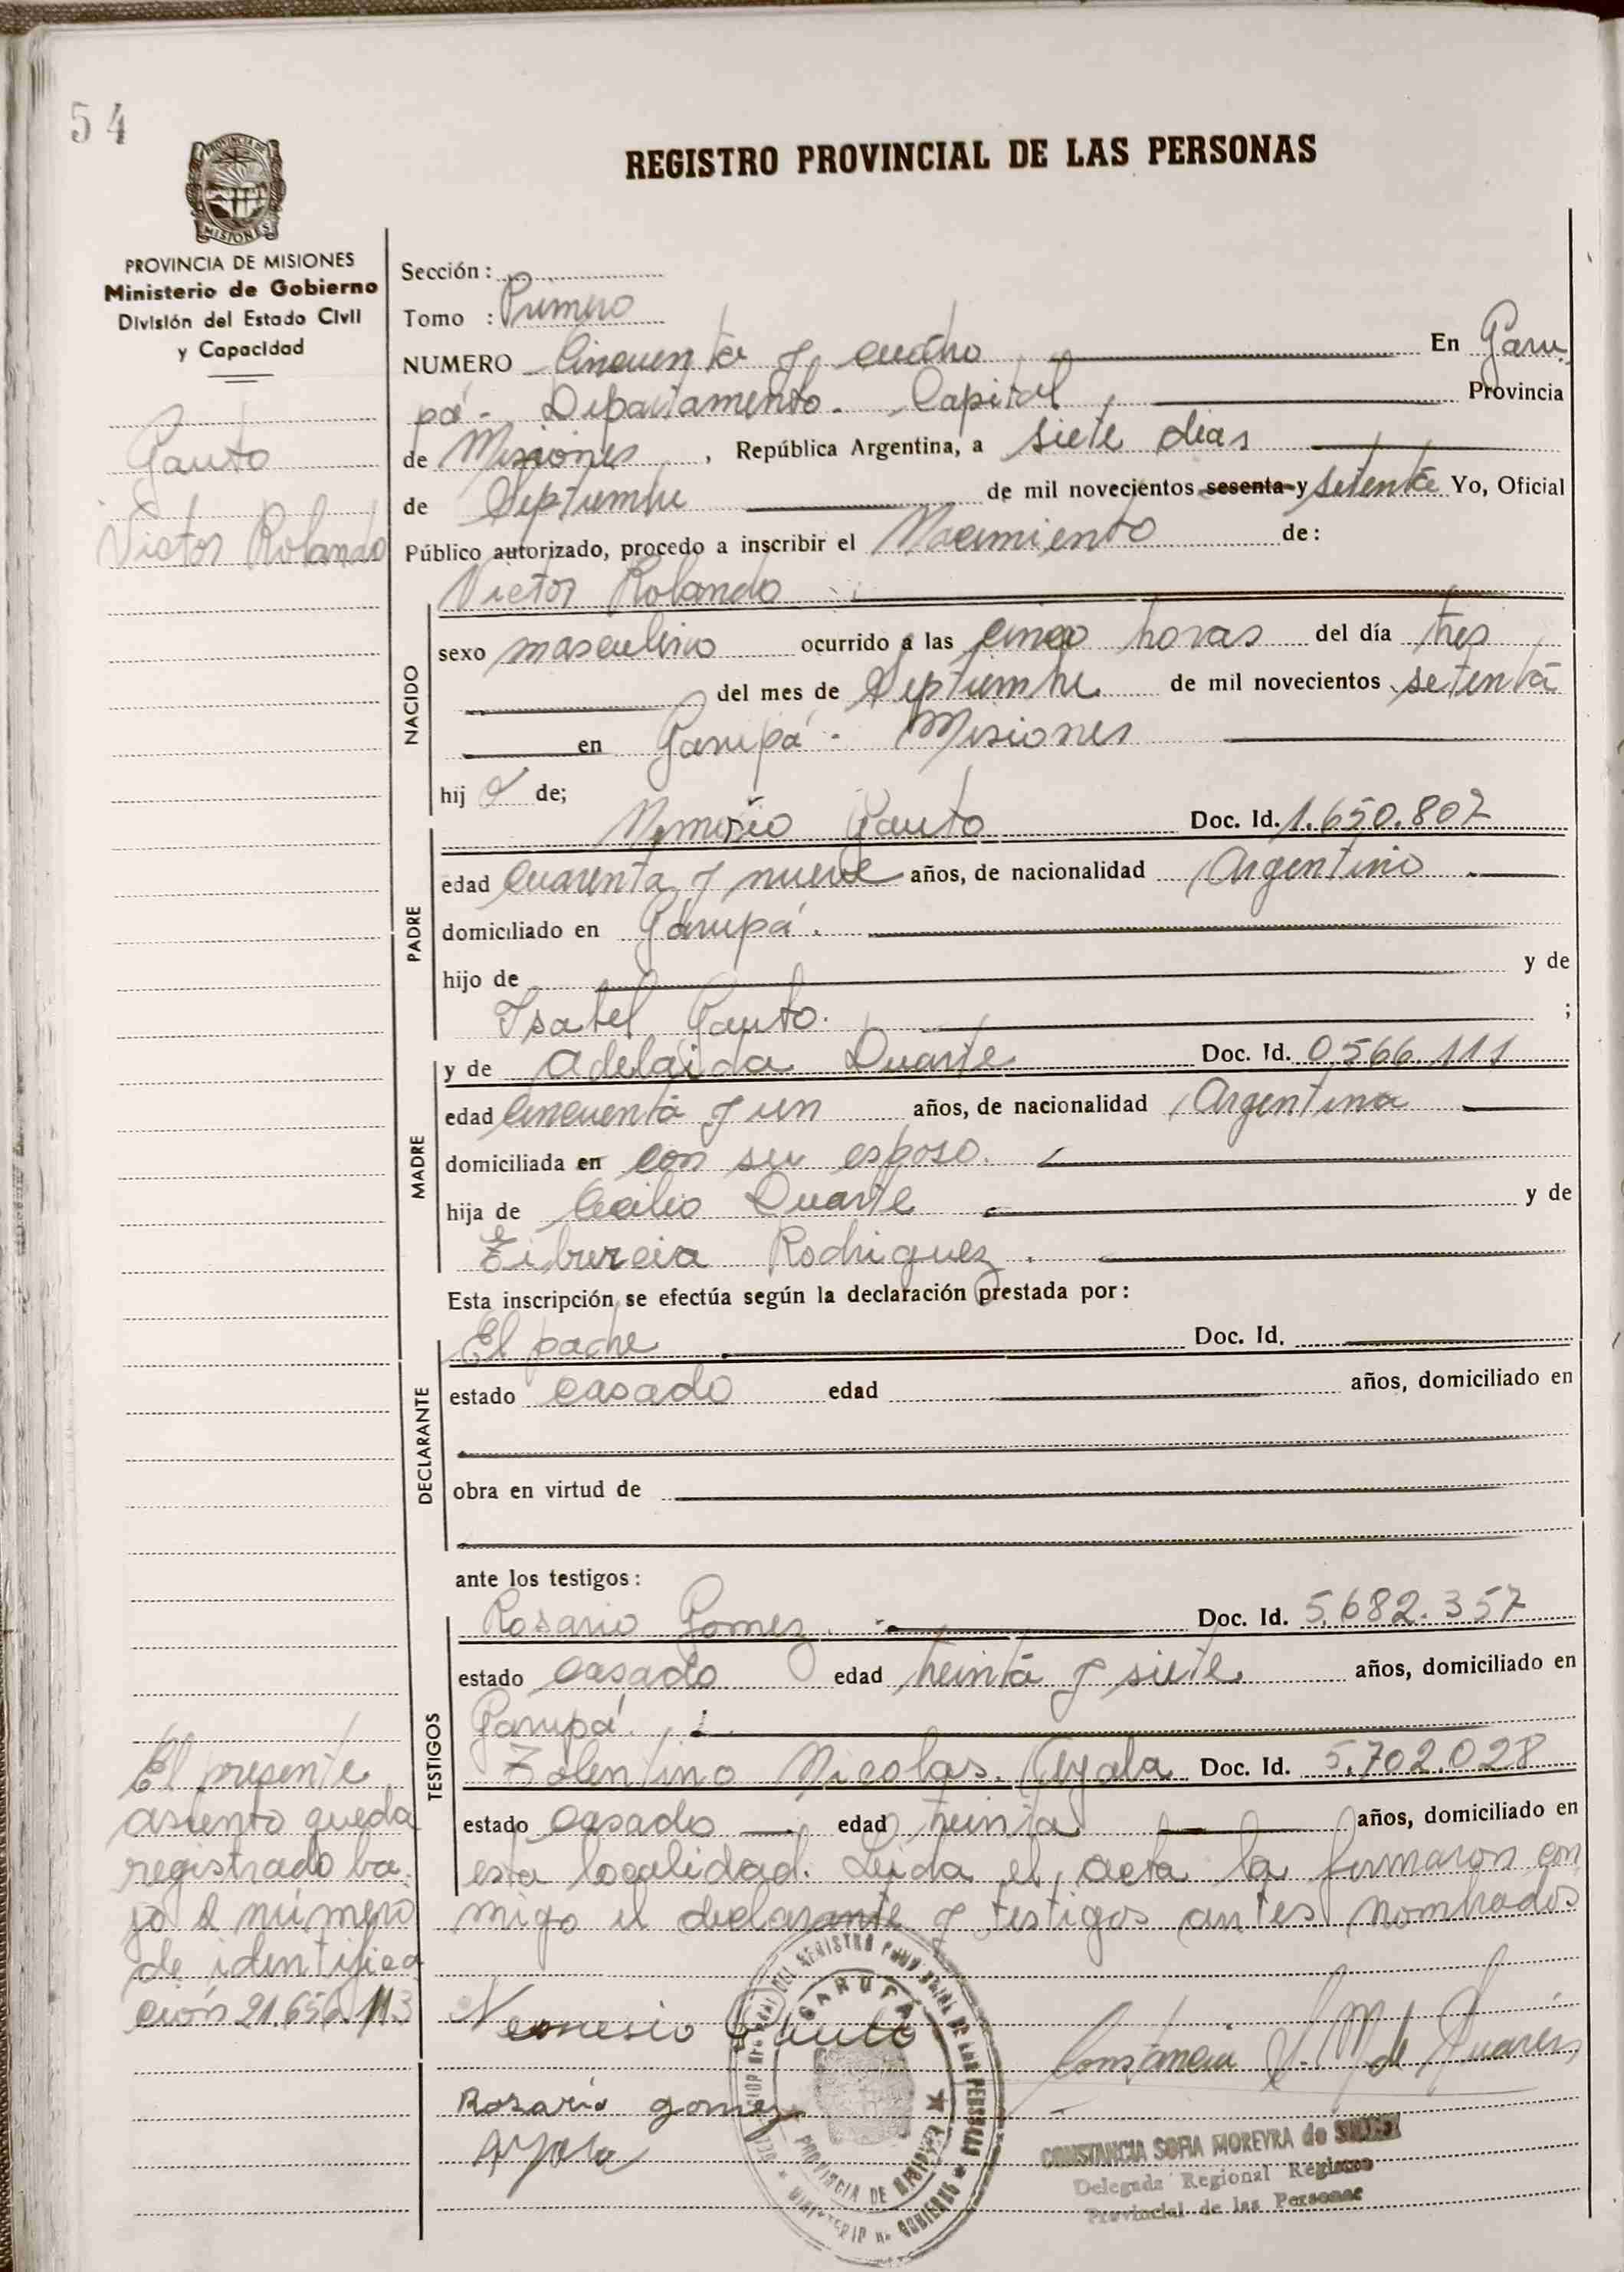 54
PROVINCIA DE
MISIONES
REGISTRO PROVINCIAL DE LAS PERSONAS
PROVINCIA DE MISIONES
Ministerio de Gobierno
División del Estado Civil
y Capacidad
Gauto
Victor Rolando
Sección :
Tomo : Primero
NUMERO Cincuenta y cuatro En Garu
pá - Departamento. Capital Provincia
de Misiones , República Argentina, a siete dias
de Septiembre de mil novecientos sesenta y setenta Yo, Oficial
Público autorizado, procedo a inscribir el Nacimiento de:
Victor Rolando
NACIDO
sexo masculino ocurrido a las cinco horas del día tres
del mes de Septiembre de mil novecientos setenta
en Garupá - Misiones
hij o de;
PADRE
Gauto Doc. Id. 1.650.807
edad cuarenta y nueve años, de nacionalidad Argentino
domiciliado en Garupá.
hijo de y de
Isabel Gauto. ;
MADRE
y de Adelaida Duarte Doc. Id. 0.566.111
edad cincuenta y un años, de nacionalidad Argentina
domiciliada en con su esposo.
hija de Cecilio Duarte y de
Tiburcia Rodriguez.
Esta inscripción se efectúa según la declaración prestada por:
DECLARANTE
El padre Doc. Id.
estado casado edad años, domiciliado en
obra en virtud de
ante los testigos:
TESTIGOS
Rosario Gomez. Doc. Id. 5.682.357
estado casado edad treinta y siete años, domiciliado en
Garupá.
Tolentino Nicolas. Ayala Doc. Id. 5.702.028
estado casado edad treinta años, domiciliado en
esta localidad. Leida el acta la firmaron con
migo el declarante y testigos antes nombrados
El presente
asiento queda
registrado ba
jo el número
de identifica
ción 21.656.113
Nemesio Gauto
Rosario gomez
Ayala
Constancia S. M de Suarez
GARUPÁ
PROVINCIA DE MISIONES
MINISTERIO DE GOBIERNO
CONSTANCIA SOFIA MOREYRA de
Delegada Regional Registro
Provincial de las Personas